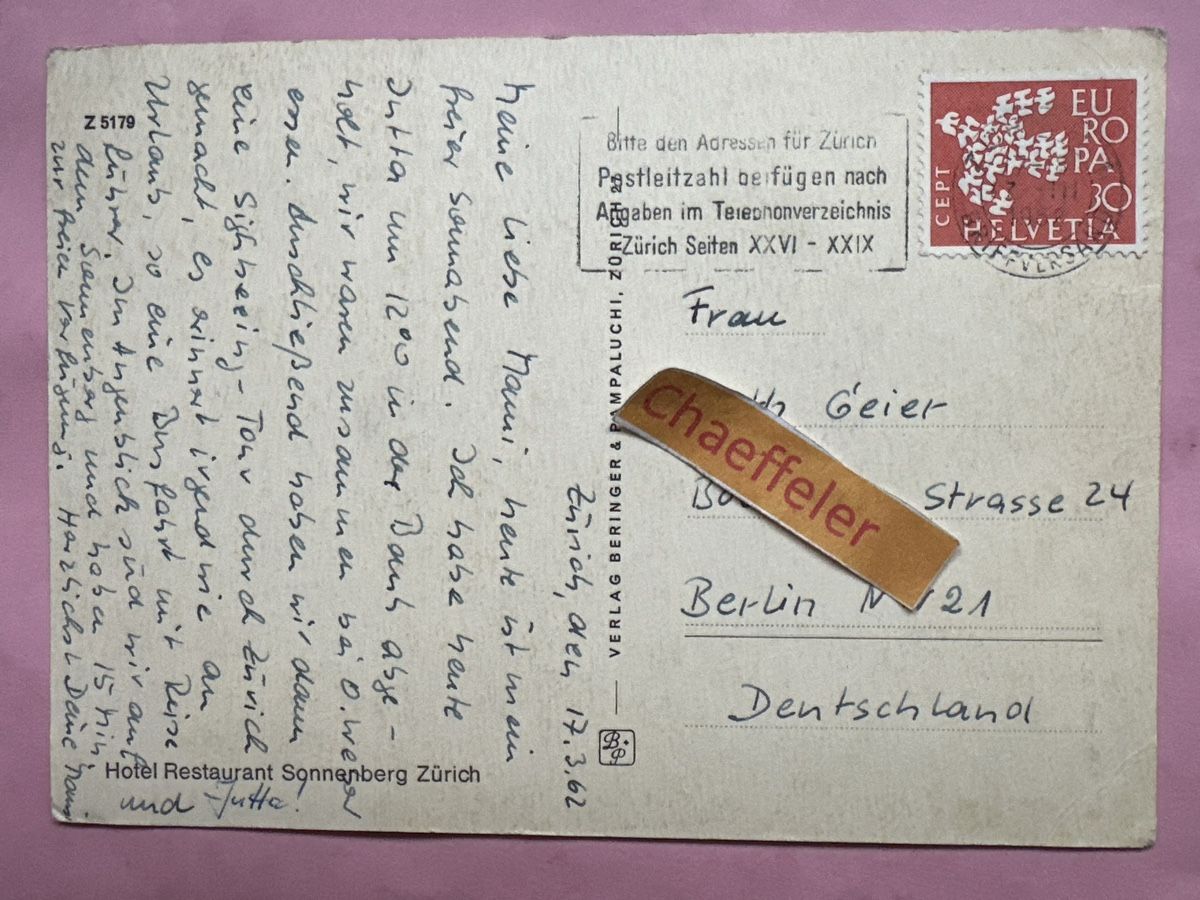 Zürich, den 17.3.62
Meine liebe Mami, heute ist mein
freier Sonnabend. Ich habe heute
Jutta um 12⁰⁰ in der Bank abge-
holt, wir waren zusammen bei O.
essen. Anschließend haben wir dann
eine Sightseeing-Tour durch Zürich
gemacht, es erinnert irgendwie an
Urlaub, so eine Busfahrt mit Reise
führer. Im Augenblick sind wir auf
dem Sonnenberg und haben 15 Min
zur freien Verfügung. Herzlichst Deine
und Jutta!
Z 5179
Hotel Restaurant Sonnenberg Zürich
VERLAG BERINGER & PAMPALUCHI, ZÜRICH 2
B.P
Bitte den Adressen für Zürich
Postleitzahl beifügen nach
Angaben im Telephonverzeichnis
Zürich Seiten XXVI - XXIX
EU
RO
PA
30
CEPT
HELVETIA
BRIEFVERSAND
Frau
Geier
Strasse 24
Berlin 21
Deutschland
Chaeffeler